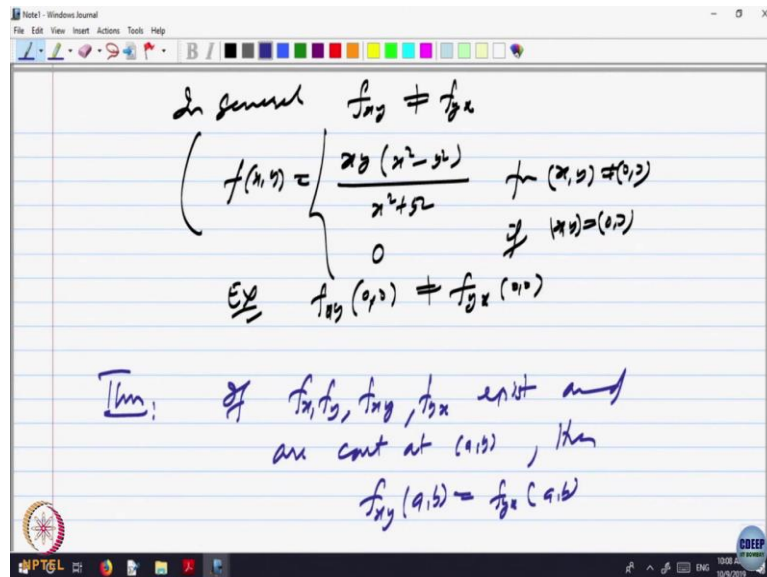 Note1 - Windows Journal
File Edit View Insert Actions Tools Help
B I
In general f_xy ≠ f_yx
f(x,y) = { xy(x²-y²) / x²+y² for (x,y) ≠ (0,0)
0 if (x,y) = (0,0)
Ex f_xy (0,0) ≠ f_yx (0,0)
Thm: If f_x, f_y, f_xy, f_yx exist and
are cont at (a,b), then
f_xy (a,b) = f_yx (a,b)
NPTEL
CDEEP
IIT BOMBAY
ENG
10/9/2019